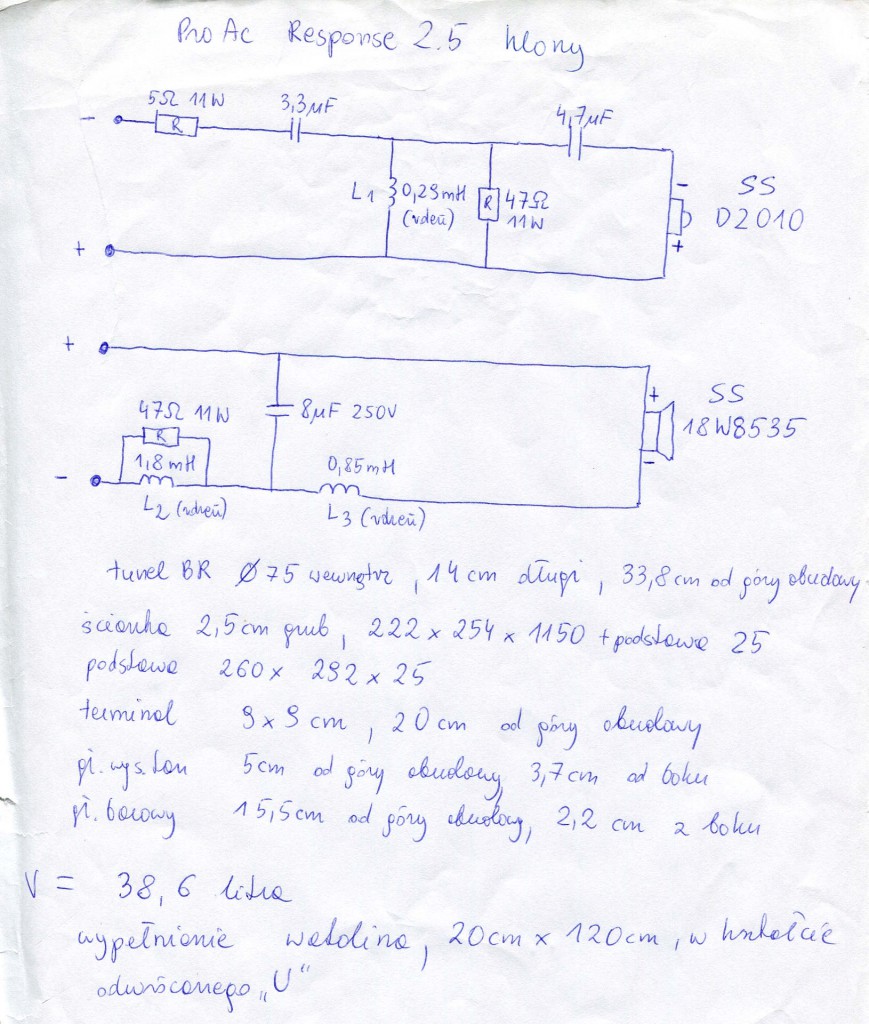 ProAc Response 2.5 klony
5Ω 11W 3,3µF 4,7µF
-
R
L1 0,29mH (rdeń)
R 47Ω 11W
- SS D2010
+
+
+
47Ω 11W
R
8µF 250V
+ SS 18W8535
-
1,8mH
0,85mH
-
L2 (rdzeń)
L3 (rdzeń)
tunel BR Ø75 wewnątrz, 14cm długi, 33,8cm od góry obudowy
ścianka 2,5cm grub, 222 x 254 x 1150 + podstawa 25
podstawa 260 x 292 x 25
terminal 9 x 9 cm, 20cm od góry obudowy
gł. wys. ton 5cm od góry obudowy, 3,7cm od boku
gł. basowy 15,5cm od góry obudowy, 2,2 cm z boku
V = 38,6 litra
wypełnienie watolina, 20cm x 120cm, w kształcie
odwróconego „U"